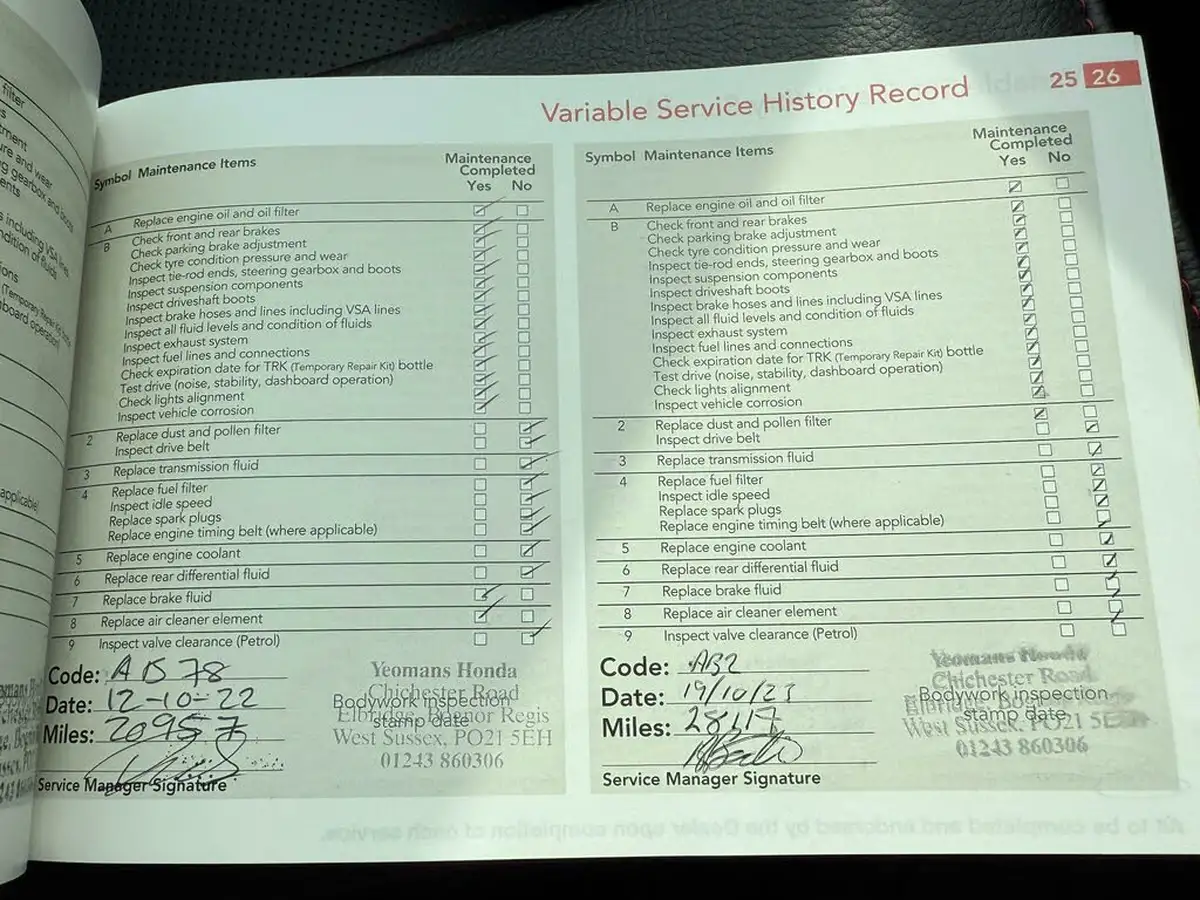 Variable Service History Record 25 26
Symbol Maintenance Items Maintenance Completed
Yes No
A Replace engine oil and oil filter
B Check front and rear brakes
Check parking brake adjustment
Check tyre condition pressure and wear
Inspect tie-rod ends, steering gearbox and boots
Inspect suspension components
Inspect driveshaft boots
Inspect brake hoses and lines including VSA lines
Inspect all fluid levels and condition of fluids
Inspect exhaust system
Inspect fuel lines and connections
Check expiration date for TRK (Temporary Repair Kit) bottle
Test drive (noise, stability, dashboard operation)
Check lights alignment
Inspect vehicle corrosion
2 Replace dust and pollen filter
Inspect drive belt
3 Replace transmission fluid
4 Replace fuel filter
Inspect idle speed
Replace spark plugs
Replace engine timing belt (where applicable)
5 Replace engine coolant
6 Replace rear differential fluid
7 Replace brake fluid
8 Replace air cleaner element
9 Inspect valve clearance (Petrol)
Code: AB 78
Date: 12-10-22
Miles: 20957
Service Manager Signature
Yeomans Honda
Chichester Road
Bodywork inspection
Elbridge, Bognor Regis
stamp date
West Sussex, PO21 5EH
01243 860306
Symbol Maintenance Items Maintenance Completed
Yes No
A Replace engine oil and oil filter
B Check front and rear brakes
Check parking brake adjustment
Check tyre condition pressure and wear
Inspect tie-rod ends, steering gearbox and boots
Inspect suspension components
Inspect driveshaft boots
Inspect brake hoses and lines including VSA lines
Inspect all fluid levels and condition of fluids
Inspect exhaust system
Inspect fuel lines and connections
Check expiration date for TRK (Temporary Repair Kit) bottle
Test drive (noise, stability, dashboard operation)
Check lights alignment
Inspect vehicle corrosion
2 Replace dust and pollen filter
Inspect drive belt
3 Replace transmission fluid
4 Replace fuel filter
Inspect idle speed
Replace spark plugs
Replace engine timing belt (where applicable)
5 Replace engine coolant
6 Replace rear differential fluid
7 Replace brake fluid
8 Replace air cleaner element
9 Inspect valve clearance (Petrol)
Code: AB2
Date: 19/10/23
Miles:
Service Manager Signature
Yeomans Honda
Chichester Road
Bodywork inspection
Elbridge, Bognor
stamp date
West Sussex, PO21 5E
01243 860306